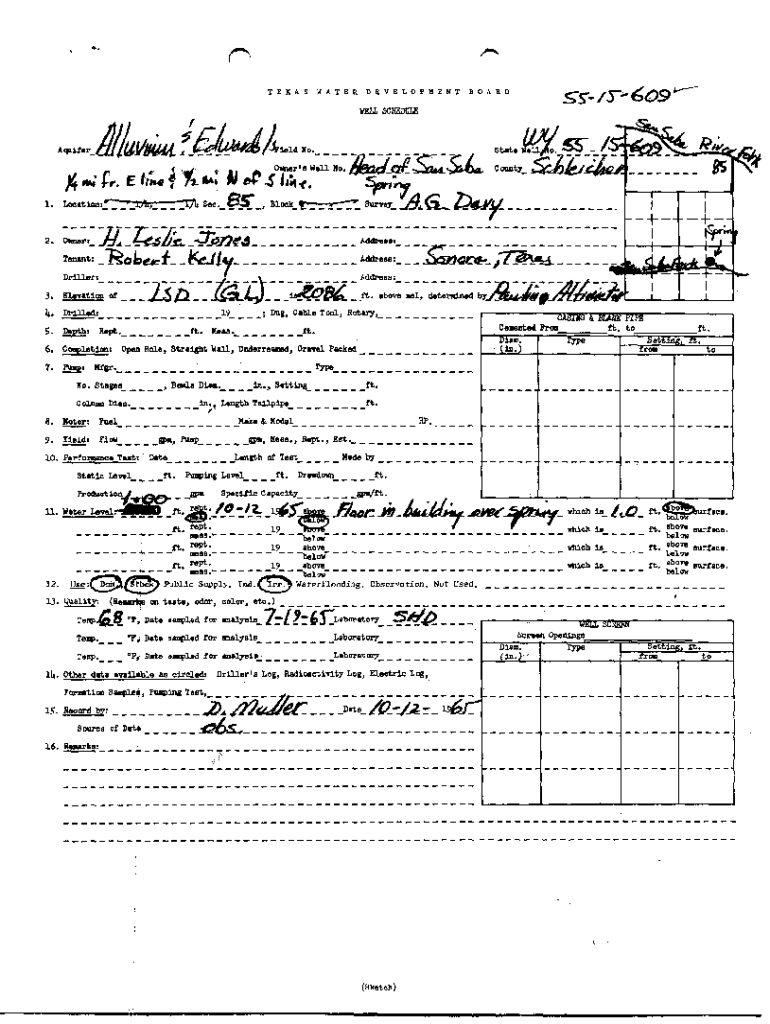 TEXAS WATER DEVELOPMENT BOARD
55-15-609
WELL SCHEDULE
Aquifer Alluvium & Edwards ls Field No. State Well No. WY 55 15-609
San Saba River Fork
Owner's Well No. Head of San Saba Spring County Schleicher 85
1/4 mi fr. E line & 1/2 mi N of S line.
1. Location: 1/4, 1/4 Sec. 85, Block Survey A.G. Davy
Spring
2. Owner: H. Leslie Jones Address:
Tenant: Robert Kelly Address: Sonora, Texas
Driller: Address:
3. Elevation of LSD (GL) is 2086 ft. above msl, determined by Paulin Altimeter
4. Drilled: 19 ; Dug, Cable Tool, Rotary,
5. Depth: Rept. ft. Meas. ft.
6. Completion: Open Hole, Straight Wall, Underreamed, Gravel Packed
7. Pump: Mfgr. Type
No. Stages , Bowls Diam. in., Setting ft.
Column Diam. in., Length Tailpipe ft.
8. Motor: Fuel Make & Model HP.
9. Yield: Flow gpm, Pump gpm, Meas., Rept., Est.
10. Performance Test: Date Length of Test Made by
Static Level ft. Pumping Level ft. Drawdown ft.
Production gpm Specific Capacity gpm/ft.
CASING & BLANK PIPE
Cemented From ft. to ft.
Diam. (in.) Type Setting, ft. from to
11. Water Level: 1.00 ft. rept. meas. 10-12 1965 above below Floor in building over spring which is 1.0 ft. above below surface.
ft. rept. meas. 19 above below which is ft. above below surface.
ft. rept. meas. 19 above below which is ft. above below surface.
ft. rept. meas. 19 above below which is ft. above below surface.
12. Use: Dom., Stock, Public Supply, Ind., Irr., Waterflooding, Observation, Not Used,
13. Quality: (Remarks on taste, odor, color, etc.)
Temp. 68 °F, Date sampled for analysis 7-19-65 Laboratory SHD
Temp. °F, Date sampled for analysis Laboratory
Temp. °F, Date sampled for analysis Laboratory
WELL SCREEN
Screen Openings
Diam. (in.) Type Setting, ft. from to
14. Other data available as circled: Driller's Log, Radioactivity Log, Electric Log,
Formation Samples, Pumping Test,
15. Record by: D. Muller Date 10-12- 1965
Source of Data obs.
16. Remarks:
(Sketch)